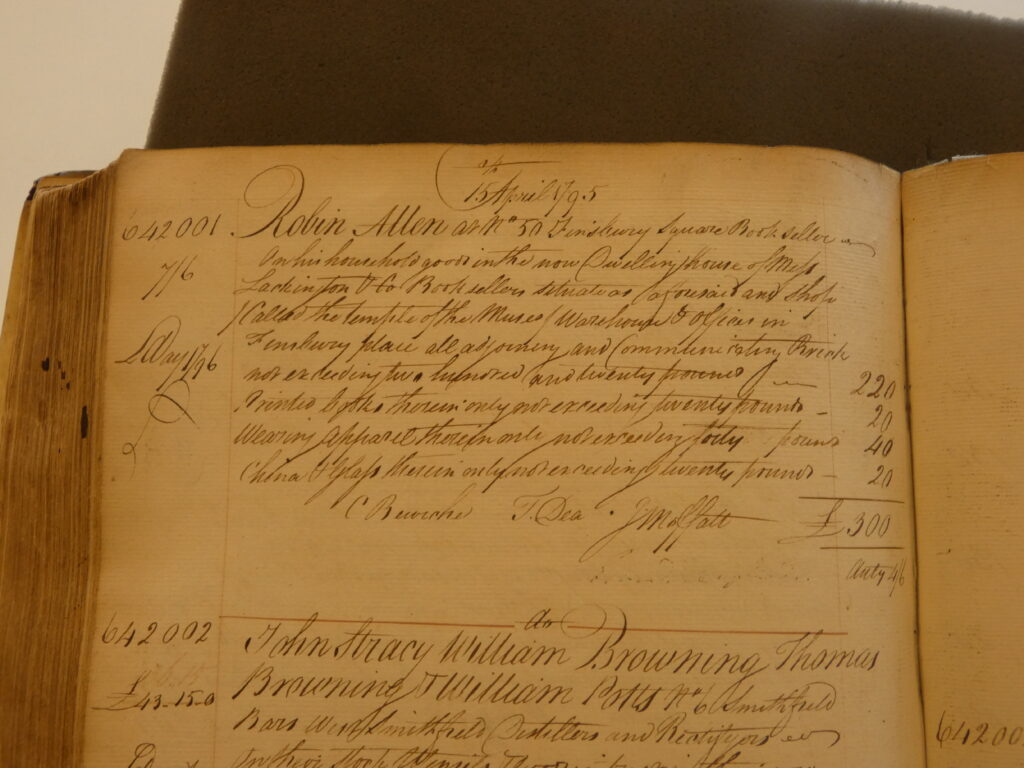 15 April 1795
642001 Robin Allen at No 50 Finsbury Square Bookseller
7/6 On his household goods in the now Dwelling house of Mess
Lackington & Co Booksellers situate as aforesaid and shop
(Called the temple of the Muses) Warehouse & offices in
LDay 1796 Finsbury place all adjoining and Communicating Brick
not exceeding two hundred and twenty pounds 220
Printed books therein only not exceeding twenty pounds 20
Wearing apparel therein only not exceeding forty pound 40
China & Glass therein only not exceeding twenty pounds 20
C Bewicke T. Dea J Moffatt £300
duty 4/6
do
642002 John Stracy William Browning Thomas
£43-15-0 Browning & William Potts No 6 Smithfield
Bars West Smithfield Distillers and Rectifyers
On their Stock Utensils
64200